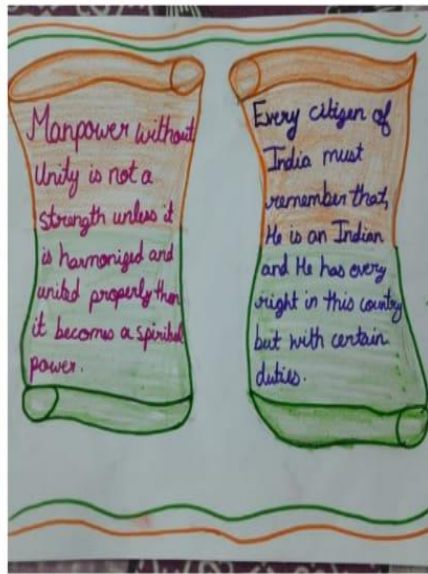 Manpower without
Unity is not a
strength unless it
is harmonized and
united properly then
it becomes a spiritual
power.
Every citizen of
India must
remember that,
He is an Indian
and He has every
right in this country
but with certain
duties.